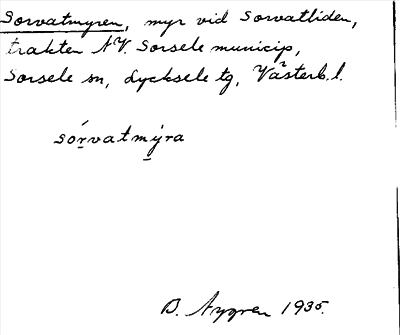 Sorvatmyren, myr vid Sorvatliden,
trakten NV. Sorsele municip,
Sorsele sn, Lycksele tg, Västerb. l.
sórvatmýra
B. 1935.